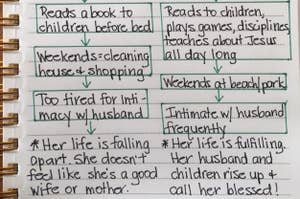 Reads a book to
children before bed
Weekends=cleaning
house & shopping
Too tired for Inti-
macy w/ husband
*Her life is falling
apart. She doesn't
feel like she's a good
wife or mother.
Reads to children,
plays games, disciplines,
teaches about Jesus
all day long
Weekends at beach/park
Intimate w/ husband
frequently
*Her life is fulfilling.
Her husband and
children rise up &
call her blessed!